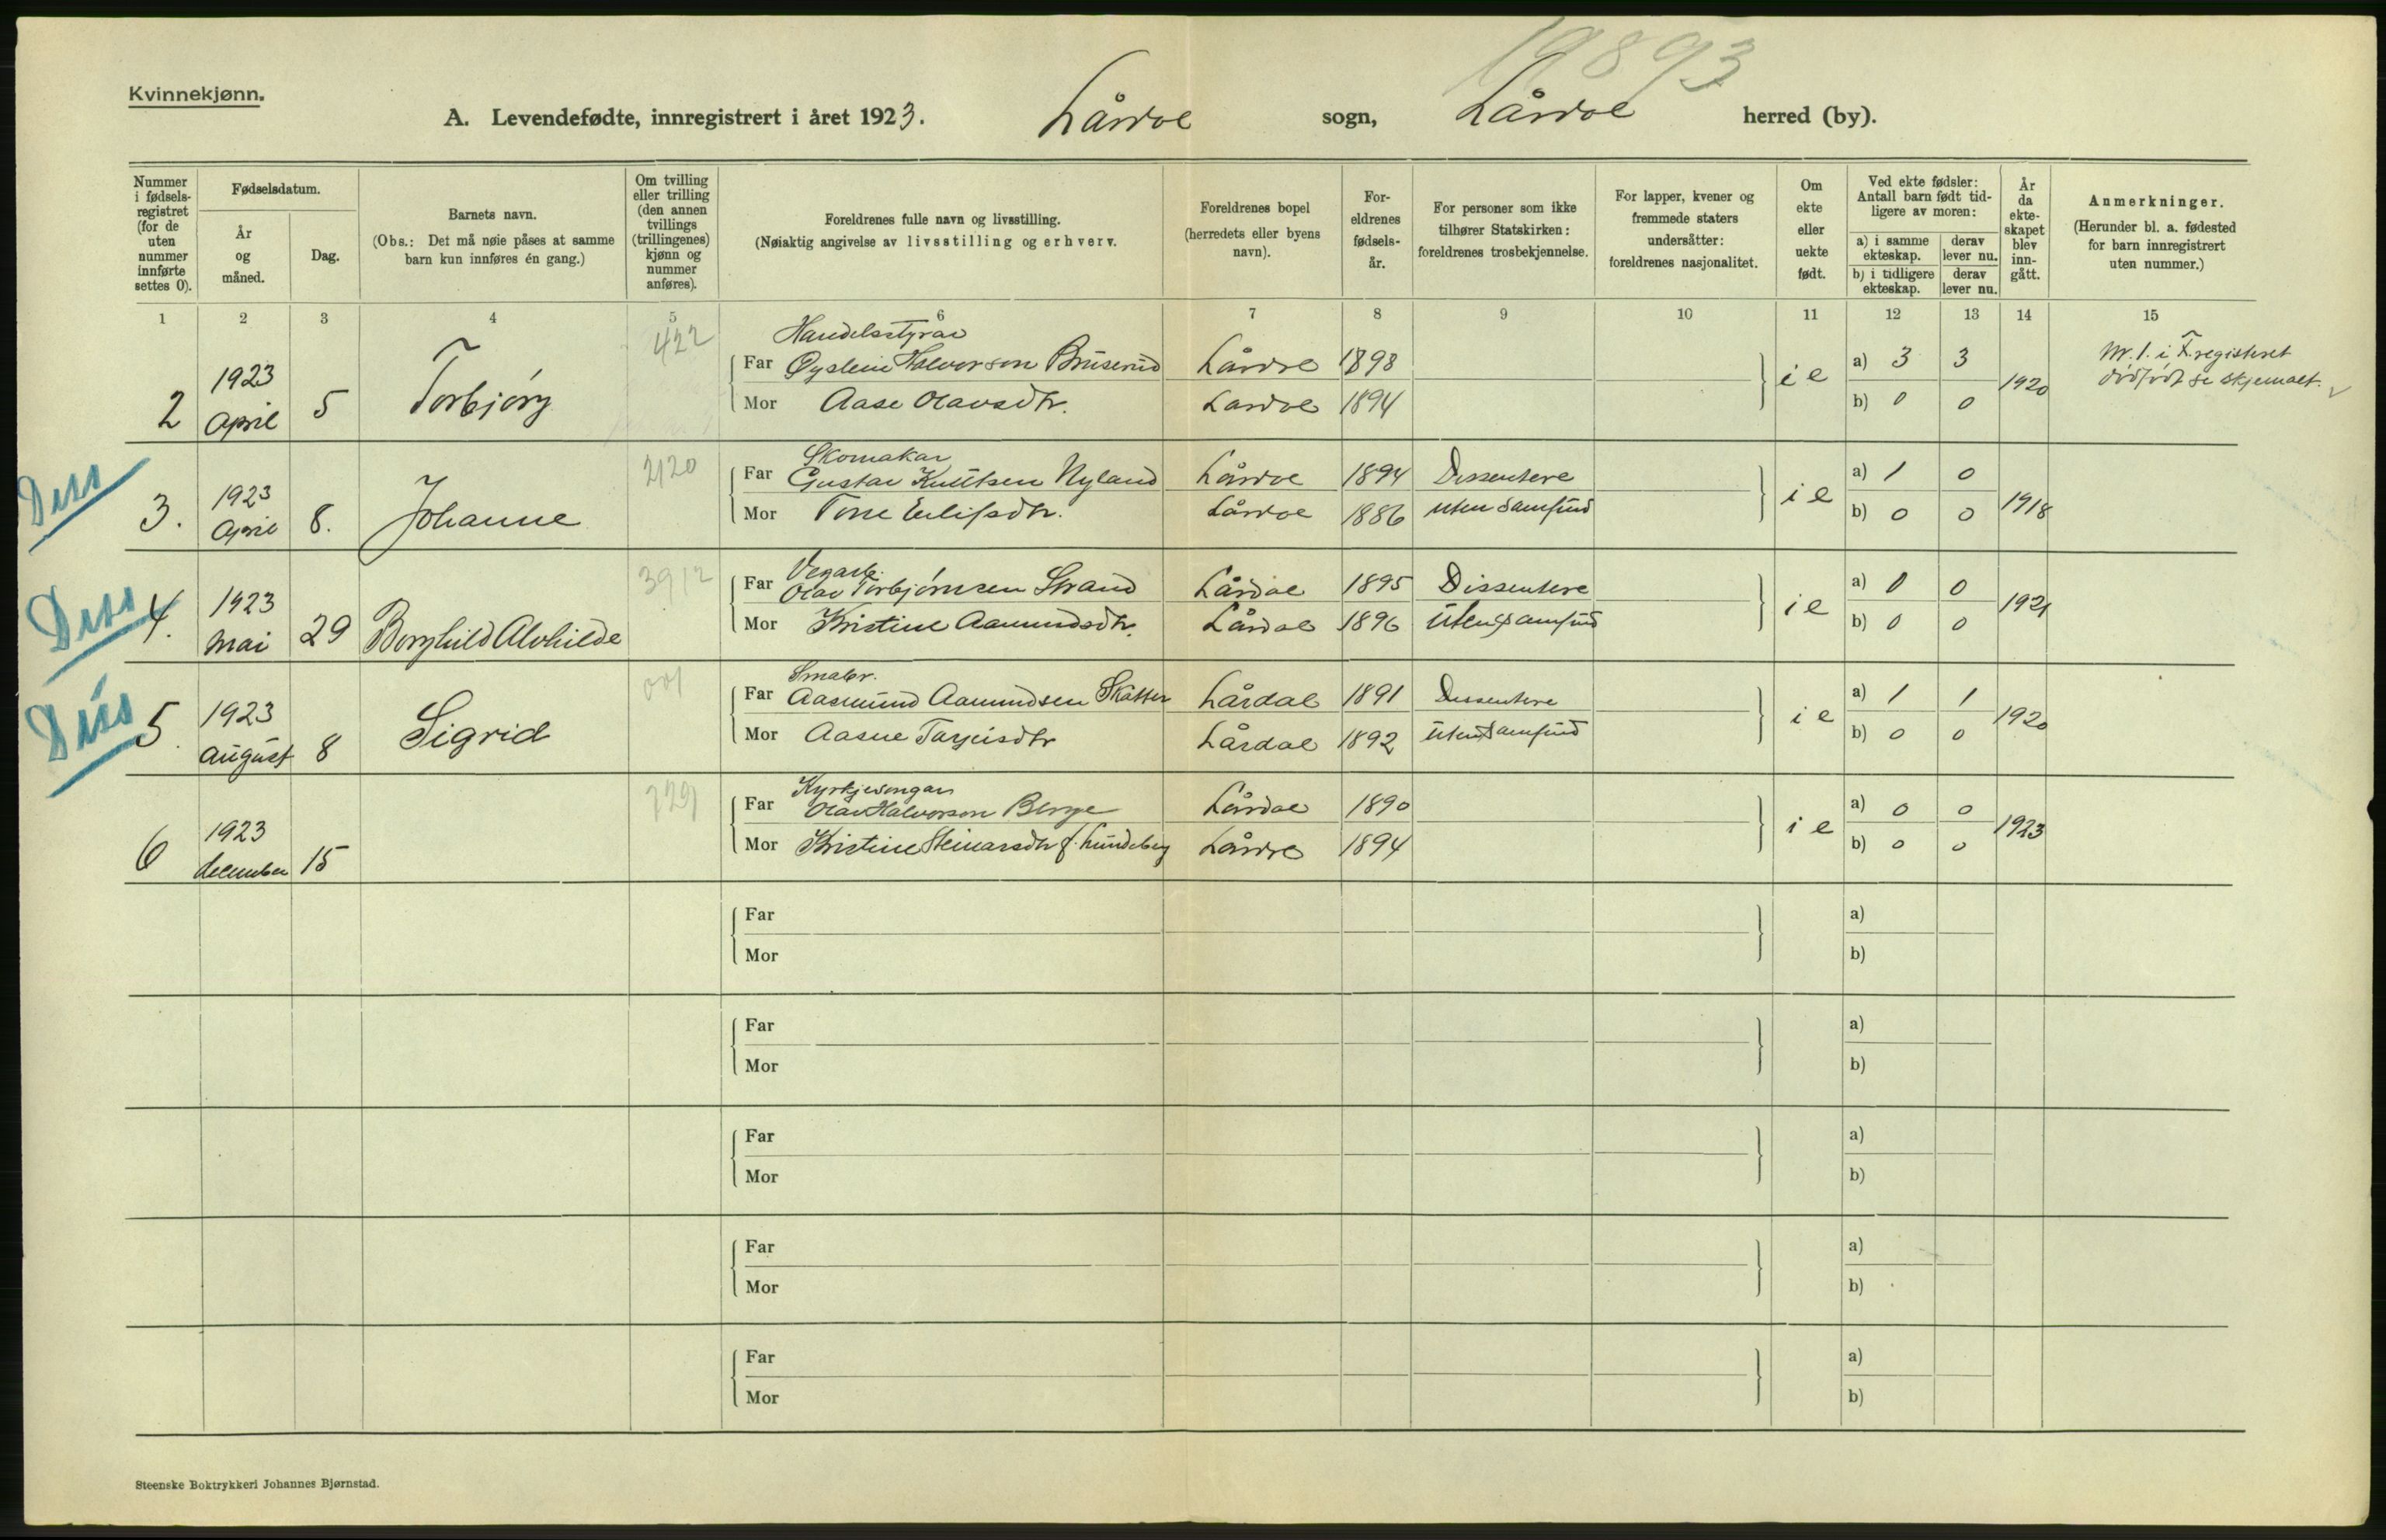 19893
Kvinnekjønn.
A. Levendefødte, innregistrert i året 1923. Lårdal sogn, Lårdal herred (by).
Nummer i fødselsregistret (for de uten nummer innførte settes 0).
Fødselsdatum.
År og måned.
Dag.
Barnets navn.
(Obs.: Det må nøie påses at samme barn kun innføres én gang.)
Om tvilling eller trilling (den annen tvillings (trillingenes) kjønn og nummer anføres).
Foreldrenes fulle navn og livsstilling.
(Nøiaktig angivelse av livsstilling og erhverv.
Foreldrenes bopel (herredets eller byens navn).
Foreldrenes fødselsår.
For personer som ikke tilhører Statskirken: foreldrenes trosbekjennelse.
For lapper, kvener og fremmede staters undersåtter: foreldrenes nasjonalitet.
Om ekte eller uekte født.
Ved ekte fødsler: Antall barn født tidligere av moren:
a) i samme ekteskap.
derav lever nu.
b) i tidligere ekteskap.
derav lever nu.
År da ekteskapet blev inngått.
Anmerkninger.
(Herunder bl. a. fødested for barn innregistrert uten nummer.)
1 2 3 4 5 6 7 8 9 10 11 12 13 14 15
422 Handelsstyrar
Far Øystein Halvorson Bruserud Lårdal 1898 a) 3 3 Nr. 1. i F.registeret
2 1923 April 5 Torbjørg ie 1920 dødfødt se skjemaet.
Mor Aase Olavsdtr. Lardal 1894 b) 0 0
Diss 2120 Skomakar
Far Gustav Knutsen Nyland Lårdal 1894 Dissentere a) 1 0
3. 1923 April 8. Johanne ie 1918
Mor Tone Eilifsdtr. Lårdal 1886 uten samfund b) 0 0
Diss 3912 Vegarb.
Far Olav Torbjørnsen Strand Lårdal 1895 Dissentere a) 0 0
4. 1923 Mai 29 Borghild Alvhilde ie 1921
Mor Kristine Aamundsdtr. Lårdal 1896 uten samfund b) 0 0
Diss 001 Smabr.
Far Aasmund Aamundsen Skatter Lårdal 1891 Dissentere a) 1 1
5. 1923 August 8 Sigrid ie 1920
Mor Aasne Tarjeisdtr Lårdal 1892 uten samfund b) 0 0
729 Kyrkjesongar
Far Olav Halvorson Berge Lårdal 1890 a) 0 0
6 1923 december 15 ie 1923
Mor Kristine Steinarsdtr f. Lundeberg Lårdal 1894 b) 0 0
Far a)
Mor b)
Far a)
Mor b)
Far a)
Mor b)
Far a)
Mor b)
Far a)
Mor b)
Steenske Boktrykkeri Johannes Bjørnstad.